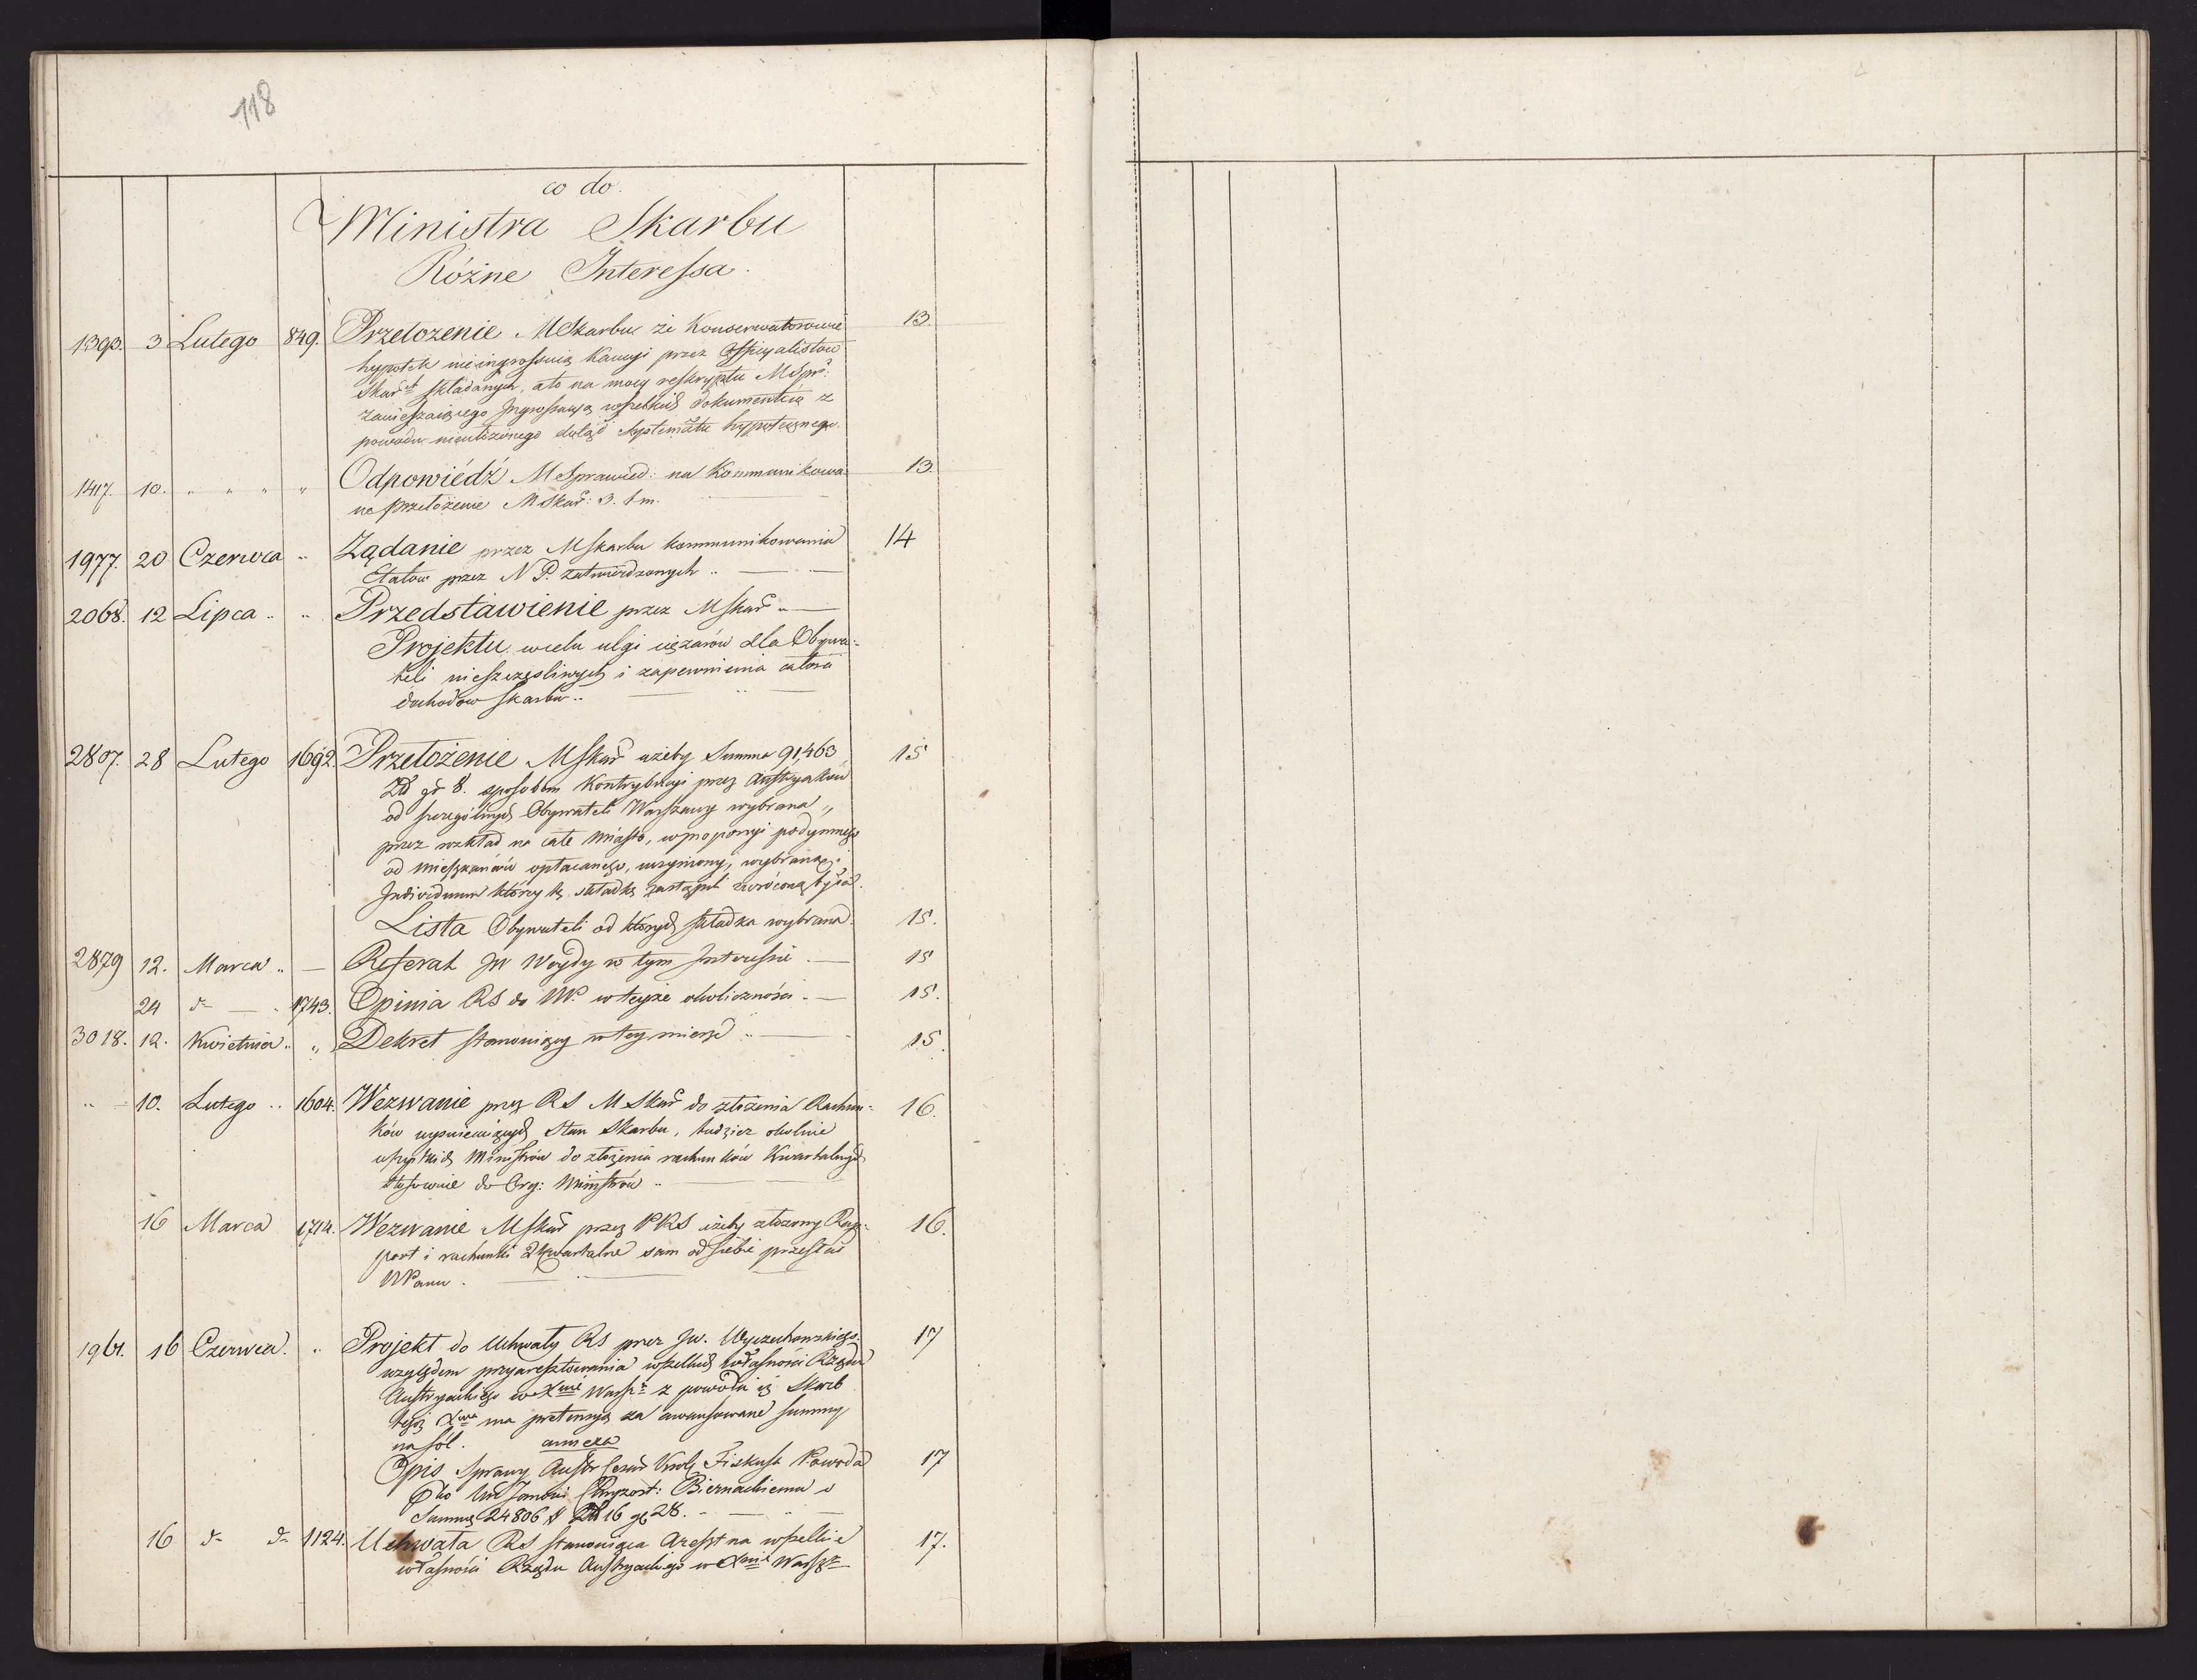 118
co do.
Ministra Skarbu
Różne Interessa.
1393. 3 Lutego 849. Przełożenie MSkarbu że Konserwatorowie 13.
hypotek nieingrossuią kaucyi przez Officyalistów
Skar. składanych, a to na mocy reskryptu MSpr:
zawieszaiącego Ingrossacyą wszelkich dokumentów z
powodu nieulożonego dotąd Systematu hypotecznego.
1417. 10. " " " " Odpowiédź MSprawied: na Kommunikowa- 13.
ne przełożenie MSkar: 3. t m.
1977. 20 Czerwca " Żądanie przez MSkarbu kommunikowania 14
Etatow przez N P. zatwierdzonych
2068. 12 Lipca " " Przedstawienie przez MSkar
Projektu wielu ulgi ciężarów dla Obywa-
teli nieszczęsliwych i zapewnienia całości
dochodow Skarbu
2807. 28 Lutego 1692. Przełożenie MSkar ażeby Summa 91,463 15
Zł gr 8. sposobem Kontrybucyi przez Austryaków
od szczególnych Obywateli Warszawy wybrana,
przez rozkład na całe miasto, w proporcyi podymnego
od mieszkańców opłacanego, uczyniony, wybrana,
Individuum którzy tę składkę zastąpili zwróconą była.
Lista Obywateli od których składka wybrana. 15.
2879 12. Marca " — Referat JW Woydy w tym Interesie 15
24 d° — 1743. Opinia RS do NP. w teyże okoliczności. — 15.
3018. 12. Kwietnia " " Dekret stanowiący w tey mierze 15.
" 10. Lutego " 1604. Wezwanie przez RS MSkar do złożenia Rachun- 16.
ków wyswiecaiących Stan Skarbu, tudzież okolnie
wszystkich Ministrów do złożenia rachunków Kwartalnych
stosownie do Org: Ministrów
16 Marca 1714. Wezwanie MSkar przez PRS ażeby złożony Rap- 16.
port i rachunki 2 kwartalne sam od siebie przesłał
NPanu.
1961. 16 Czerwca. " Projekt do Uchwały RS przez JW. Wyczechowskiego. 17
względem przyaresztowania wszelkich własności Rządu
Austryackiego w Xtwie Warsz z powodu iż Skarb
tegoż Xtwa ma pretensyą za awansowane summy
na sól. annexa
Opis Sprawy Austr Cesar Krol Fiskusa Powoda 17
Biernackiemu o
Summę 24806 Zł 16 gr 28.
16 d° d° 1124. Uchwała RS stanowiąca areszt na wszelkie 17.
własności Rządu Austryackiego w Xtwie Warsz